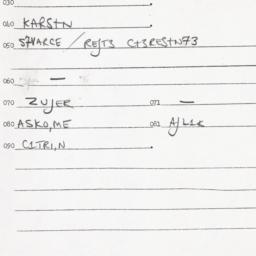 030
040 KARSTN
050 S7VARCE / REJTS C+3REStN73
060 —
070 ZUJER 071 —
080 ASKO,ME 081 AJL1K
090 C1TRI,N